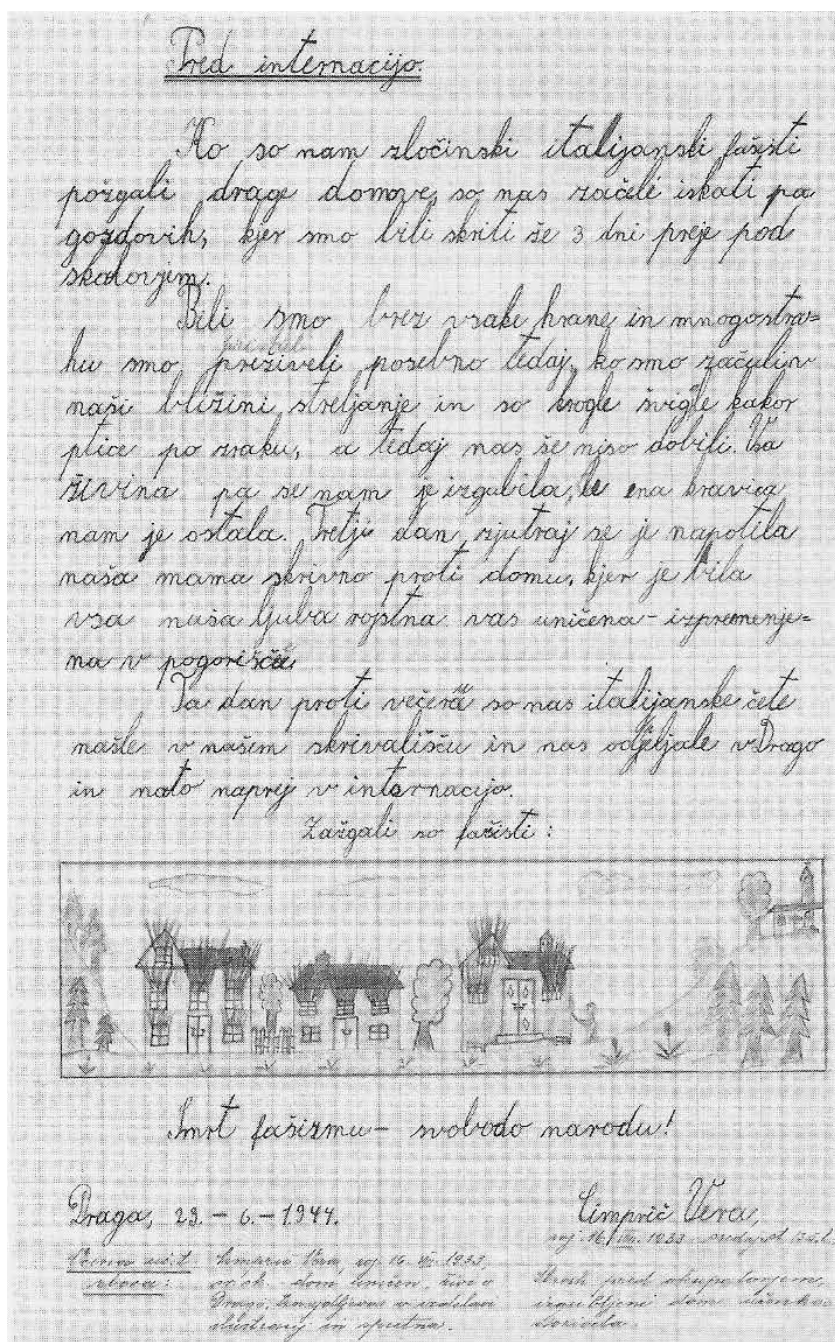 Pred internacijo.
Ko so nam zločinski italijanski fašisti
požgali drage domove, so nas začele iskati pa
gozdovih, kjer smo bili skriti že 3 dni preje pod
skalovjem.
Bili smo brez vsake hrane in mnogo stra-
hu smo preživeli posebno tedaj, ko smo začuli v
naši bližini streljanje in so krogle švigle kakor
ptice po zraku, a tedaj nas še niso dobili. Vsa
živina pa se nam je izgubila, le ena kravica
nam je ostala. Tretji dan zjutraj se je napotila
naša mama skrivno proti domu, kjer je bila
vsa naša ljuba rojstna vas uničena - izpremenje-
na v pogorišče.
Ta dan proti večeru so nas italijanske čete
našle v našem skrivališču in nas odpeljale v Drago
in nato naprej v internacijo.
Zažgali so fašisti:
Smrt fašizmu - svobodo narodu!
Draga, 23. - 6. - 1944.
Cimprič Vera,
roj. 16. VII. 1933
Vera, roj. 16. VII. 1933,
dom uničen, živi v
Dragi,
Strah pred
izgubljeni dom